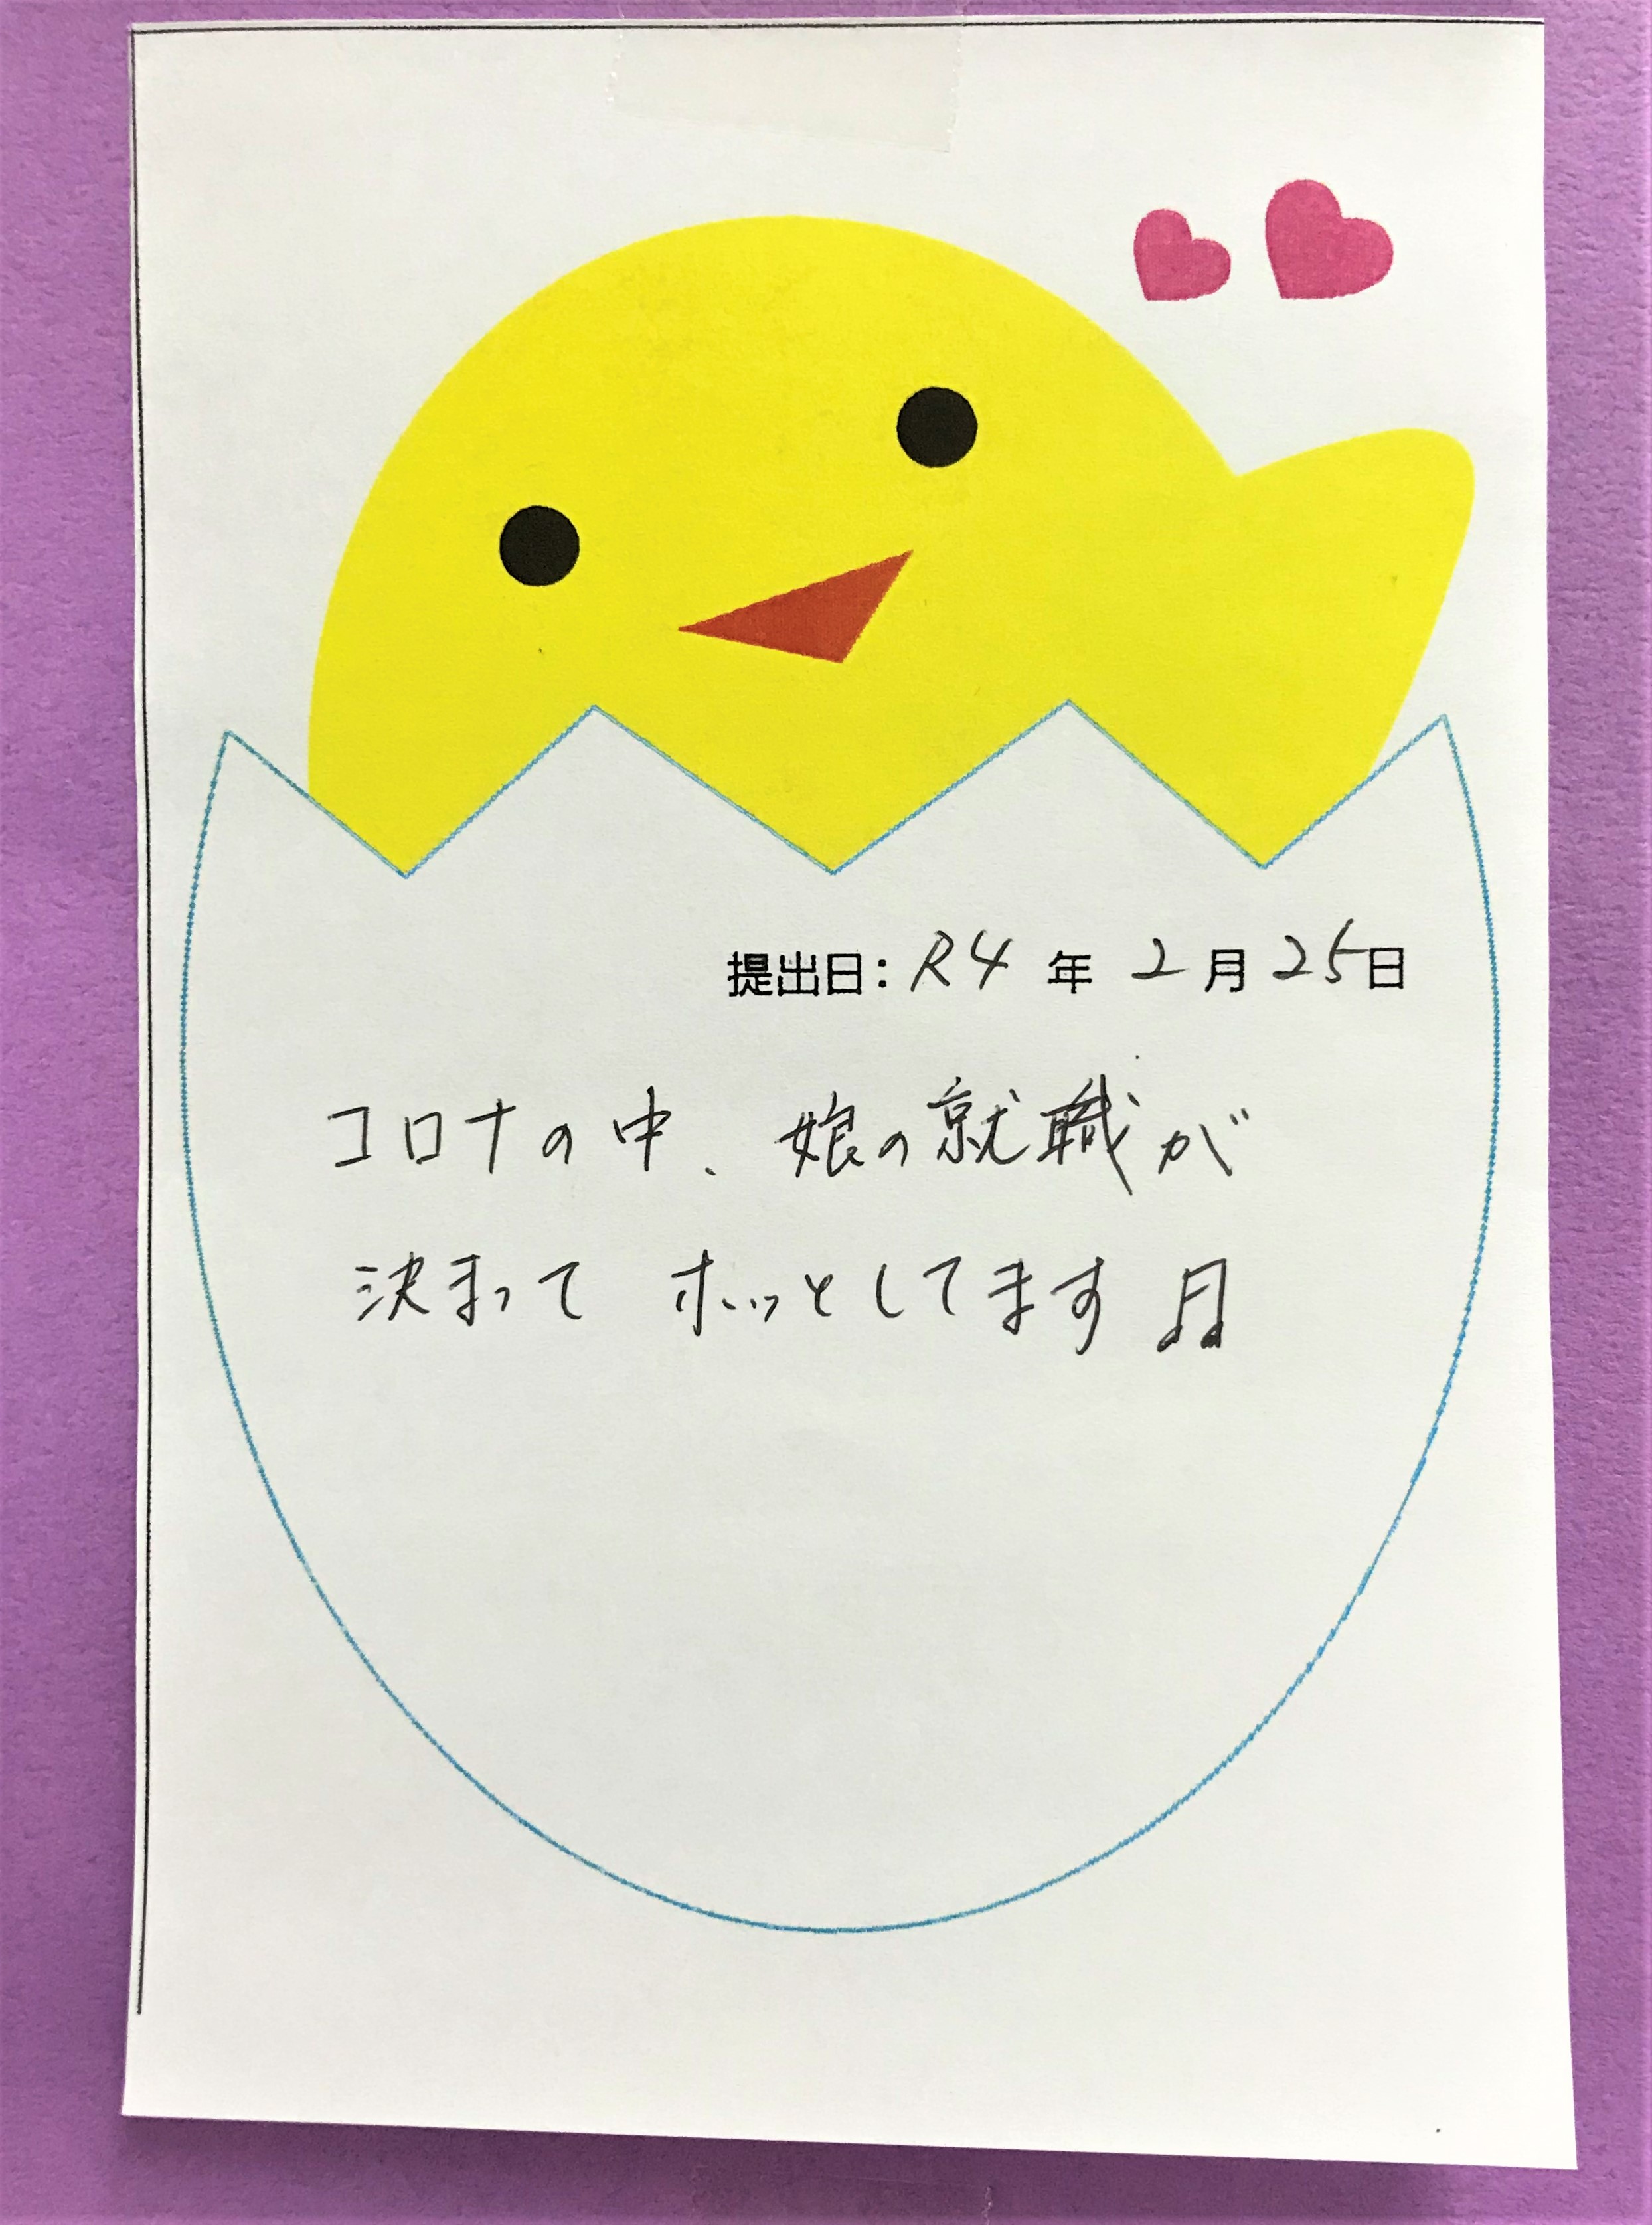 提出日: R4 年 2 月 25日
コロナの中、娘の就職が
決まって ホッとしてます♫